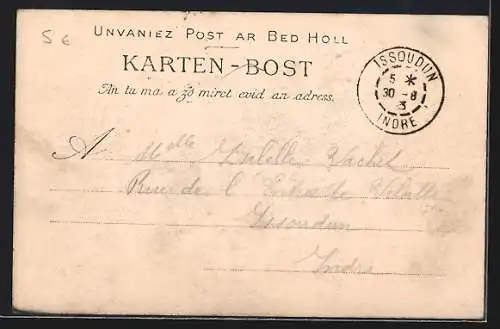 5 €
UNVANIEZ POST AR BED HOLL
KARTEN-BOST
An tu ma a zo miret evid an adress.
ISSOUDUN
5 *
30 - 8
INDRE
A Melle
Rue de l'
Issoudun
Indre